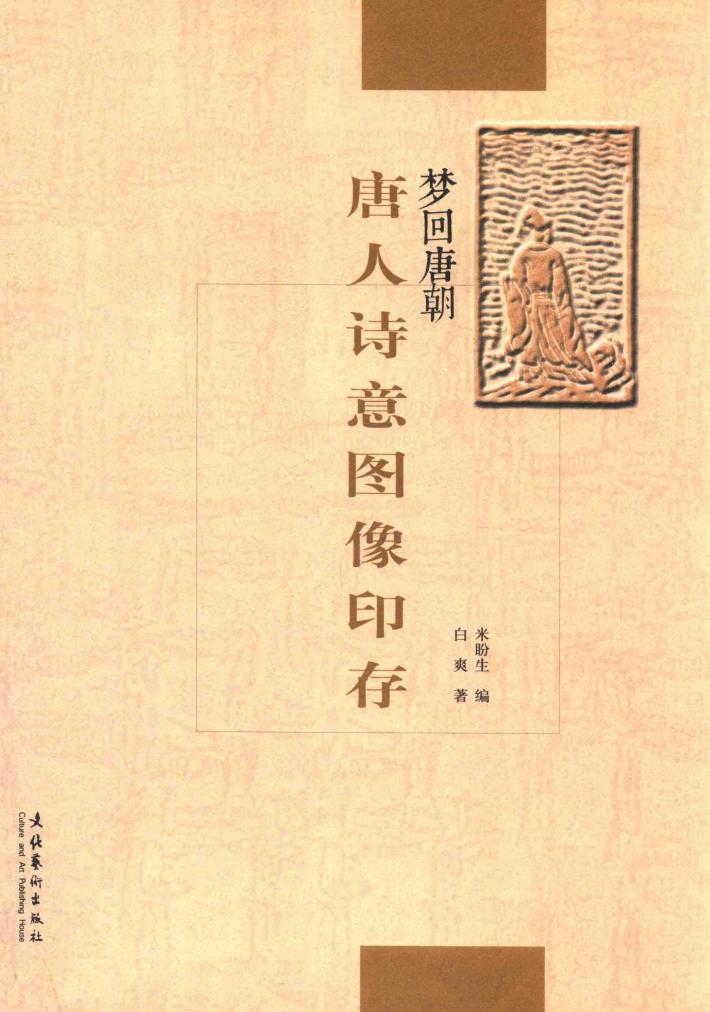 梦回唐朝
唐人诗意图像印存
米盼生 编
白爽 著
文化藝術出版社
Culture and Art Publishing House